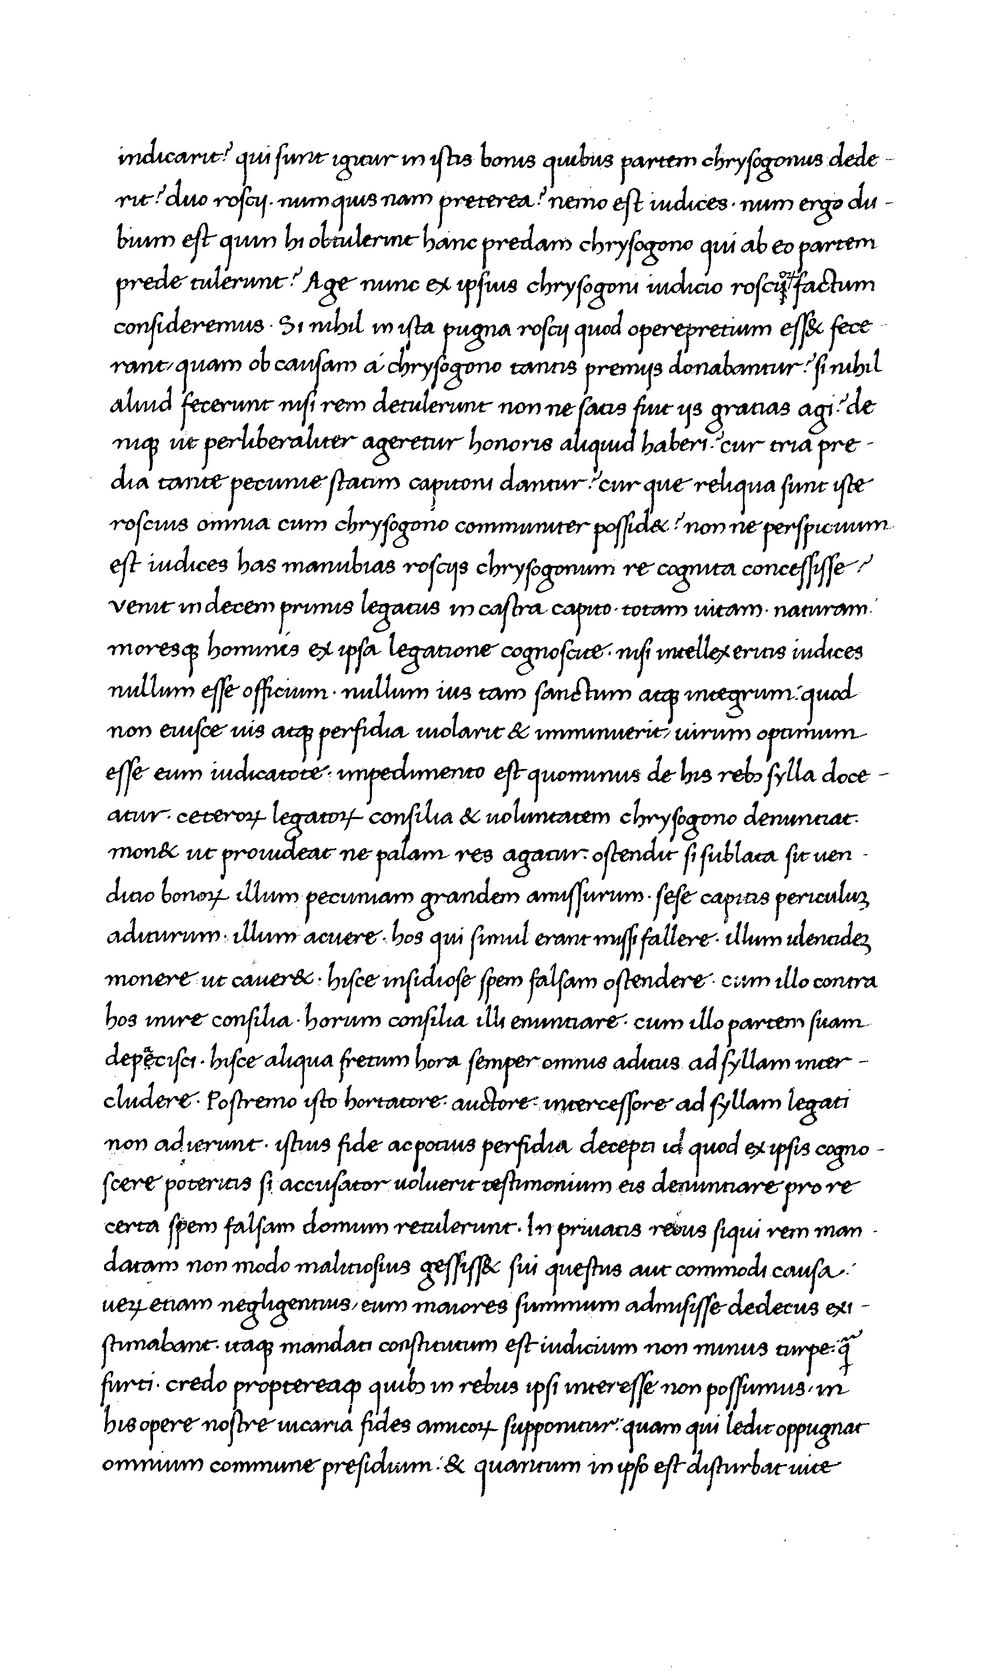 indicarit? qui sunt igitur in istis bonis quibus partem chrysogonus dede-
rit? duo roscij. num quis nam preterea? nemo est iudices. num ergo du-
bium est quin hi obtulerint hanc predam chrysogono qui ab eo partem
prede tulerunt? Age nunc ex ipsius chrysogoni iudicio roscijꝝ factum
consideremus. Si nihil in ista pugna roscij quod operepretium ess& fece
rant, quam ob causam á chrysogono tantis premijs donabantur? si nihil
aliud fecerunt nisi rem detulerunt non ne satis fuit ijs gratias agi? de
niqꝫ ut perliberaliter ageretur honoris aliquid haberi? cur tria pre-
dia tante pecunie statim capitoni dantur? cur que reliqua sunt iste
roscius omnia cum chrysogono communiter possid&? non ne perspicuum
est iudices has manubias roscijs chrysogonum re cognita concessisse?
venit in decem primis legatus in castra capito. totam uitam. naturam.
moresqꝫ hominis ex ipsa legatione cognoscite. nisi intellexeritis iudices
nullum esse officium. nullum ius tam sanctum atqꝫ integrum: quod
non eiusce uis atqꝫ perfidia uiolarit & imminuerit, uirum optimum
esse eum iudicatote. impedimento est quominus de his rebꝫ sylla doce-
atur. ceteroꝝ legatoꝝ consilia & uoluntatem chrysogono denuntiat.
mon& ut prouideat ne palam res agatur. ostendit si sublata sit uen-
ditio bonoꝝ illum pecuniam grandem amissurum. sese capitis periculuꝫ
aditurum. illum acuere. hos qui simul erant missi fallere. illum identideꝫ
monere ut cauer&. hisce insidiose spem falsam ostendere. cum illo contra
hos inire consilia. horum consilia illi enuntiare. cum illo partem suam
depẽcisci. hisce aliqua fretum hora semper omnis aditus ad syllam inter-
cludere. Postremo isto hortatore. auctore. intercessore ad syllam legati
non adierunt. istius fide ac potius perfidia decepti id quod ex ipsis cogno-
scere poteritis si accusator uoluerit testimonium eis denuntiare pro re
certa spem falsam domum retulerunt. In priuatis rebus siqui rem man-
datam non modo malitiosius gessiss& sui questus aut commodi causa:
ueꝝ etiam negligentius, eum maiores summum admisisse dedecus exi-
stimabant. itaqꝫ mandati constitutum est iudicium non minus turpe: q̃
furti. credo proptereaqꝫ quibꝫ in rebus ipsi interesse non possumus, in
his opere nostre uicaria fides amicoꝝ supponitur: quam qui ledit oppugnat
omnium commune presidium: & quantum in ipso est disturbat uite